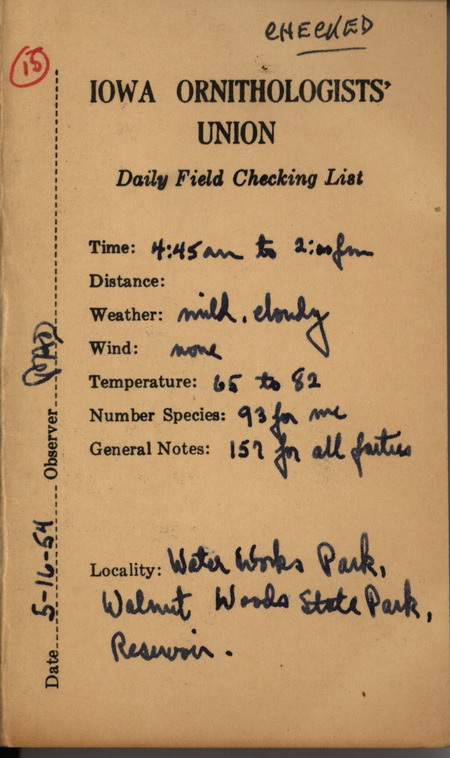 CHECKED
15
IOWA ORNITHOLOGISTS'
UNION
Daily Field Checking List
Time: 4:45 am to 2:00 pm
Distance:
Weather: mild, cloudy
Wind: none
Temperature: 65 to 82
Number Species: 93 for me
General Notes: 157 for all parties
Locality: Water Works Park,
Walnut Woods State Park,
Reservoir.
Date 5-16-54 Observer